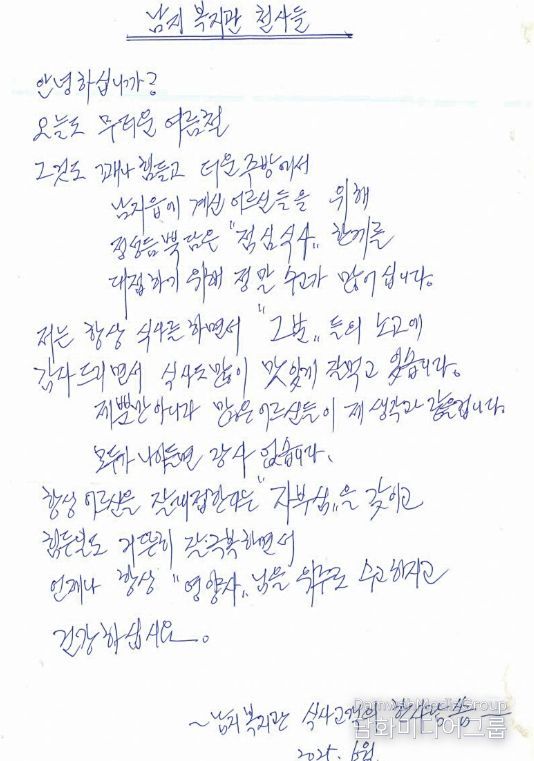 남지 복지관 천사들
안녕하십니까?
오늘도 무더운 여름철
그것도 꽤나 힘들고 더운 주방에서
남지읍에 계신 어르신들을 위해
정성듬뿍 담은 "점심식사" 한께를
대접하기 위해 정말 수고가 많이십니다.
저는 항상 식사를 하면서 "그분"들의 노고에
감사드리면서 식사도 많이 맛있게 잘먹고 있습니다.
제뿐만아니라 많은 어르신들이 제 생각과 같을겁니다.
모두가 나이들면 장사 없습니다.
항상 어르신을 잘대접한다는 "자부심"을 갖이고
힘든일도 거뜬히 잘극복하면서
언제나 항상 "영양사"님을 위주로 수고하시고
건강하십시요.
~남지복지관 식사고객의 한사람 씀
2025. 6월
Damwha Media Group
담화미디어그룹